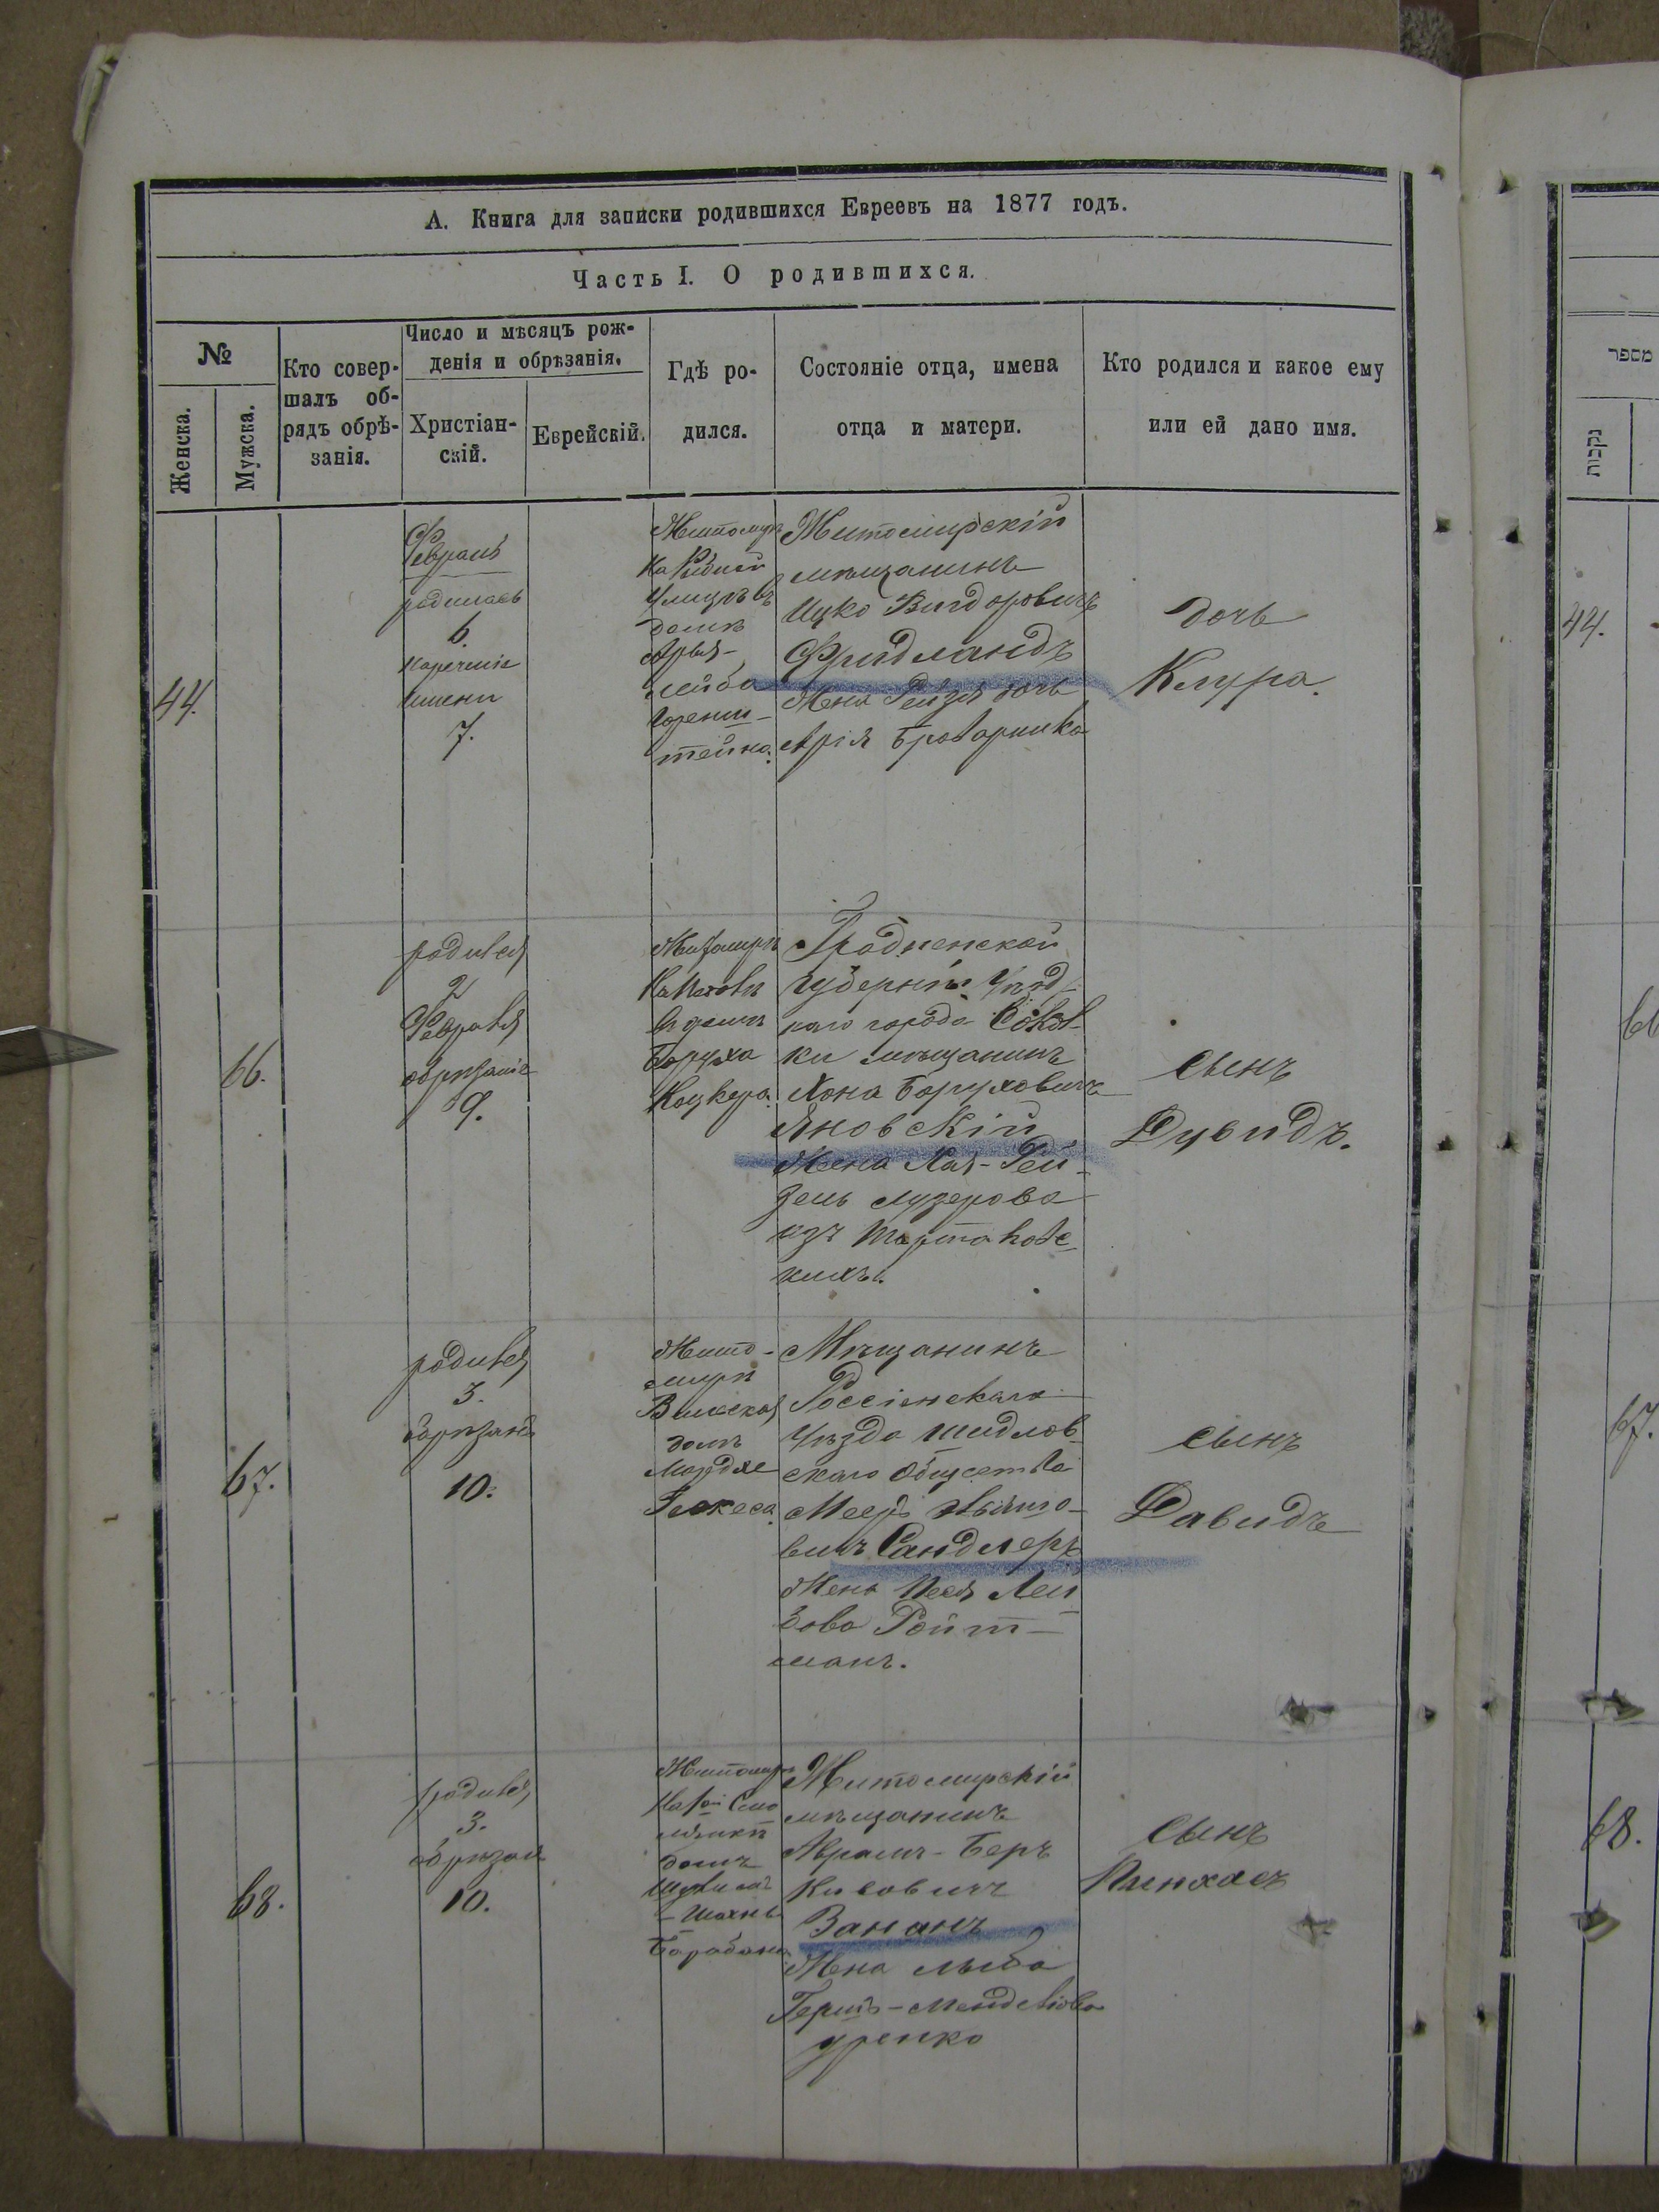 А. Книга для записки родившихся Евреевъ на 1877 годъ.
Часть I. О родившихся.
№
Женска.
Мужска.
Кто совер-
шалъ об-
рядъ обрѣ-
занія.
Число и мѣсяцъ рож-
денія и обрѣзанія.
Христіан-
скій.
Еврейскій.
Гдѣ ро-
дился.
Состояніе отца, имена
отца и матери.
Кто родился и какое ему
или ей дано имя.
44.
Февраль
родилась
6.
нареченіе
имени
7.
Житомиръ
На
Улицѣ въ
домѣ
Арья-
Лейба
Горенш-
тейна.
Житомирскій
мѣщанинъ
Ицко Вигдоровичъ
Фридландъ
Жена Рейзя дочь
Арія Броварника
дочь
Клура.
66.
родился
2
Февраля
обрѣзаніе
9.
Житомиръ
въ домѣ
Боруха
Коцкера.
Гродненской
губерніи Уѣзд-
наго города Сокол-
ки мѣщанинъ
Хона Боруховичъ
Яновскій
Жена Хая-Рей-
зель
изъ
кихъ.
сынъ
Дувидъ.
67.
родился
3.
обрѣзанъ
10.
Жито-
миръ
Вильская
домъ
Мордхе
Мѣщанинъ
Россіенскаго
Уѣзда Шидлов-
скаго Общества
Мееръ
вичъ Сандлеръ
Жена Песя Лей
бова Ройт-
манъ.
сынъ
Давидъ
68.
родился
3.
обрѣзан
10.
Житомиръ
домъ
-Шахны
Барабана
Житомирскій
мѣщанинъ
Аврамъ-Беръ
Кисовичъ
Вананъ
Жена
Гершъ-Менделіова
сынъ
Пинхасъ
מספר
נקבות
44.
66
67.
68.